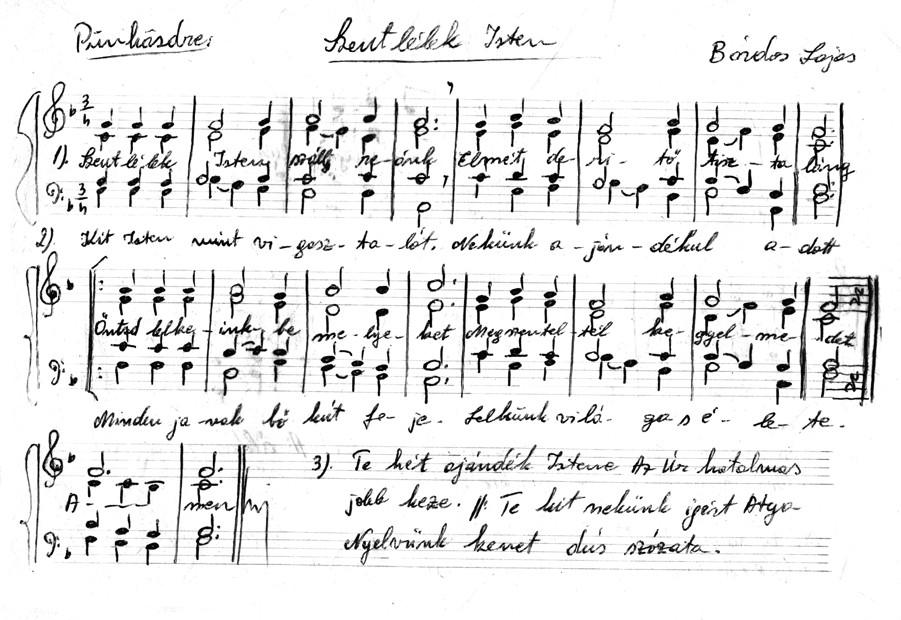 Pünkösdre:
Szent lélek Isten
Bárdos Lajos
1). Szent lélek Isten, szállj re-ánk Elmét de-rí-tő tisz-ta láng
2). Kit Isten mint vi-gasz-ta-lót. Nekünk a-ján-dékul a-dott
Öntsd lelke-inkbe me-lege-ket Megmentel-tél ke-gyel-me-det
Minden ja-vak bő kút fe-je. Lelkünk vilá-ga s é-le-te.
A-men
3). Te hét ajándék Istene Az Úr hatalmas
jobb keze. //: Te kit nekünk igért Atya-
Nyelvünk kenet dús szózata.